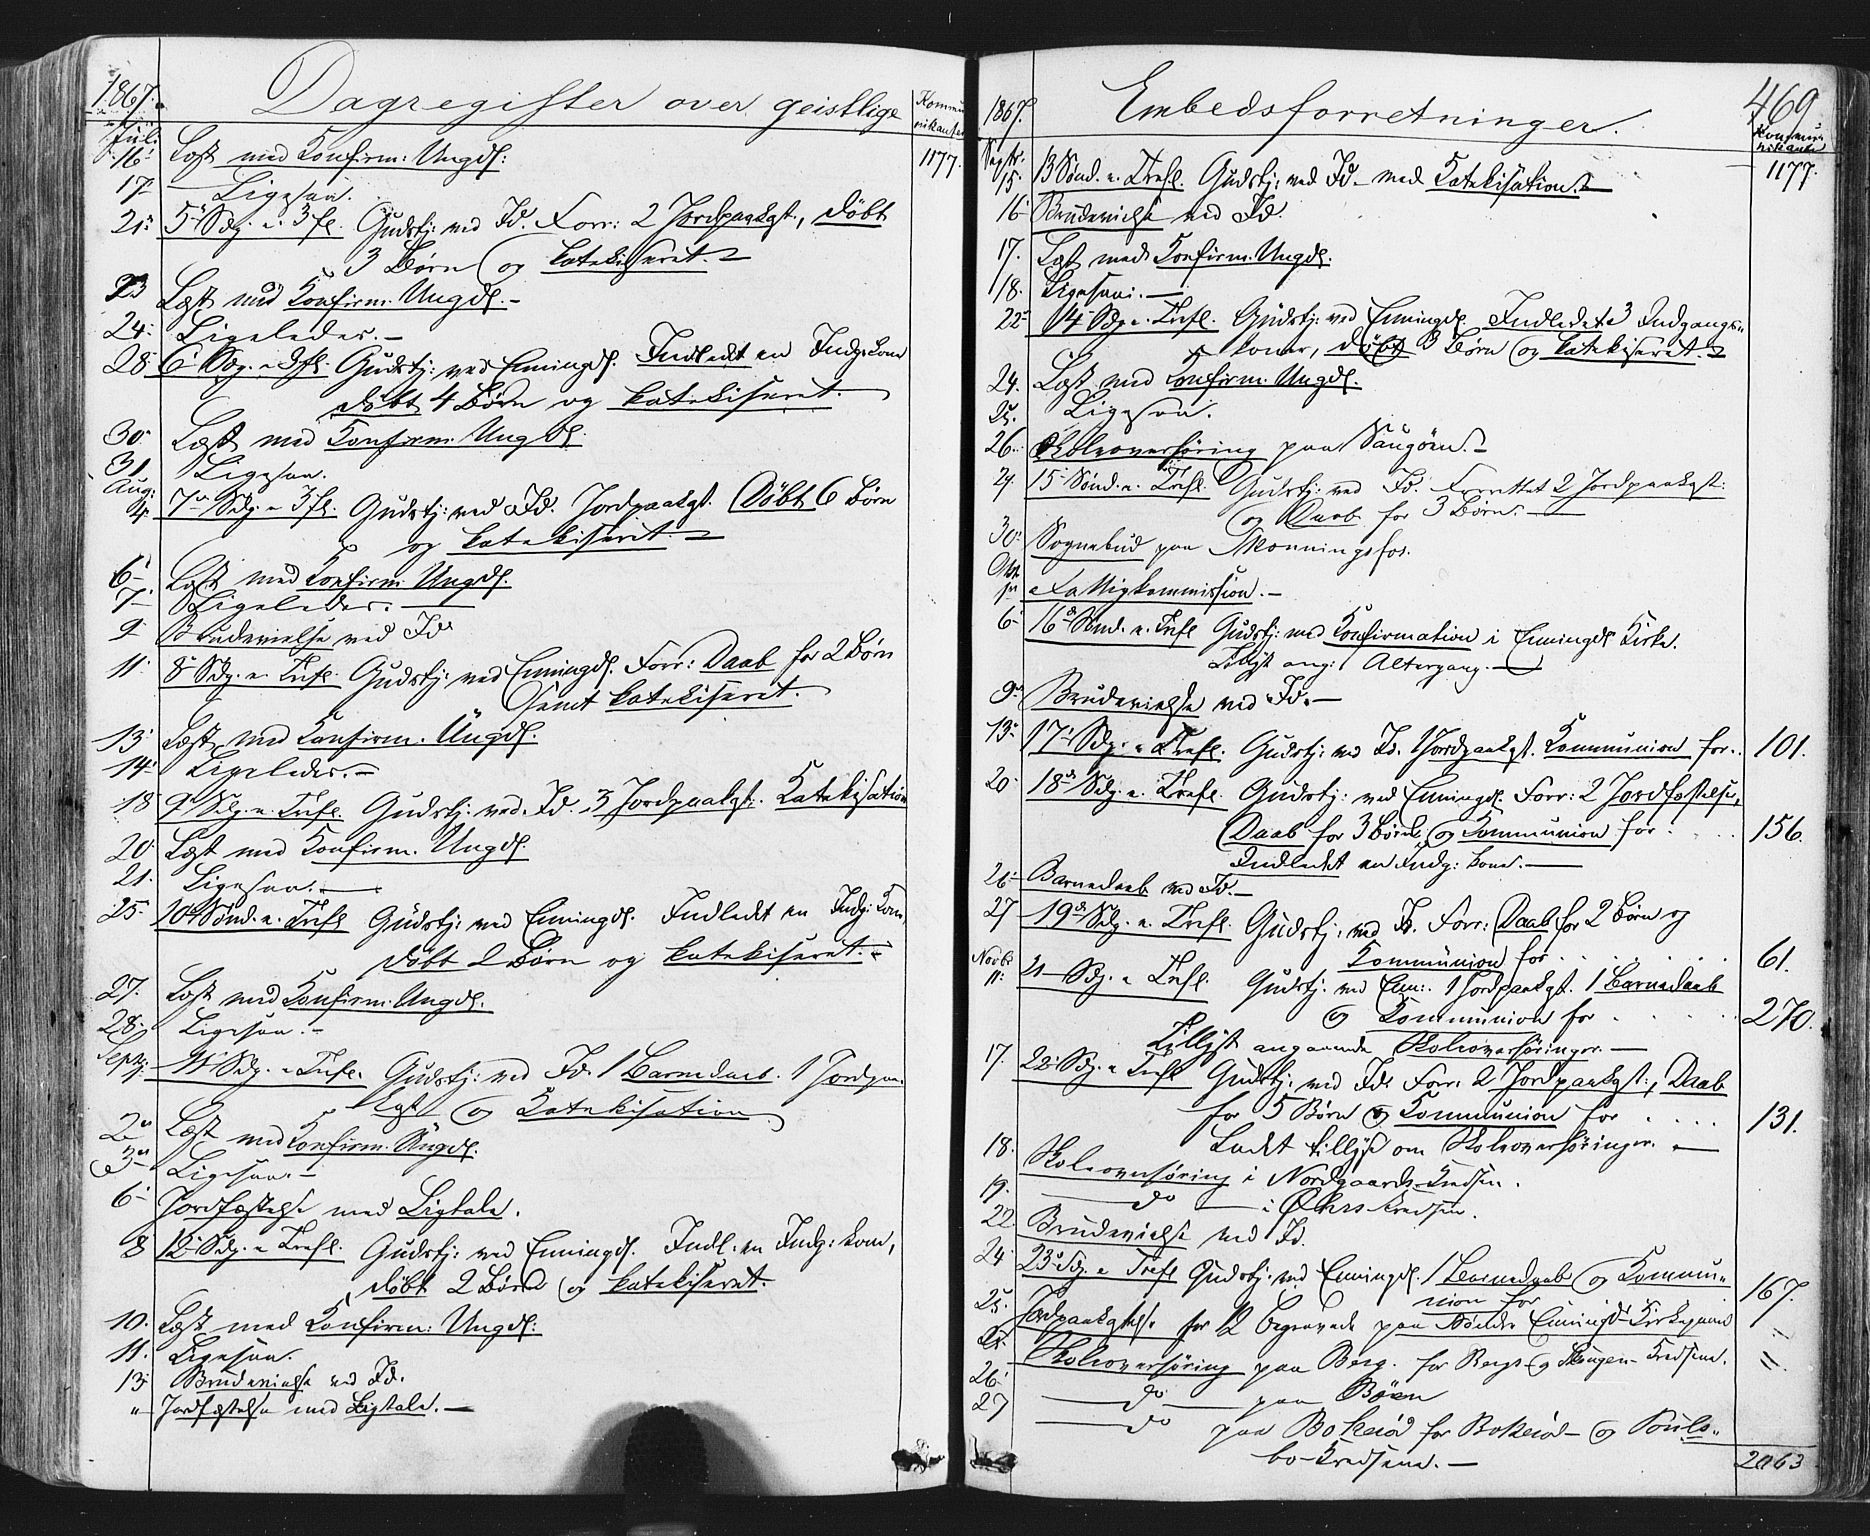 1867. Dagregister over geistlige Kommunikanter
Juli
16 Læst med Konfirm: Ungd: 1177.
17 Ligesaa.
21 5 Sdg. e. Trefl. Gudstj: ved Id. Forr: 2 Jordpaakgst., døbt
3 Børn og katekiseret.
23 Læst med Konfirm. Ungd.
24 Ligeledes.
28 6 Sdg. e. Trefl. Gudstj: ved Enningd. Indledt en Indg: Kone
døbt 4 Børn og katekiseret.
30 Læst med Konfirm. Ungd.
31. Ligesaa.
Aug:
4. 7 Sdg. e. Trefl. Gudstj: ved Id. Jordpaakgst. Døbt 6 Børn
og katekiseret.
6 Læst med Konfirm. Ungd.
7 Ligeledes.
9 Brudevielse ved Id
11 8 Sdg. e. Trefl. Gudstj: ved Enningd. Forr: Daab for 2 Børn
samt katekiseret.
13 Læst med Konfirm. Ungd.
14 Ligeledes.
18 9 Sdg. e. Trefl. Gudstj: ved Id. 3 Jordpaakgst. Katekisation
20 Læst med Konfirm. Ungd.
21. Ligesaa.
25 10 Sønd. e. Trefl Gudstj: ved Enningd. Indledt en Indg: Kone,
døbt 2 Børn og katekiseret.
27. Læst med Konfirm. Ungd.
28. Ligesaa.
Septbr
1. 11 Sdg. e. Trefl. Gudstj: ved Id. 1 Barnedaab. 1 Jordpaa-
kgst og Katekisation
2 Læst med Konfirm. Ungd.
3 Ligesaa.
6 Jordfæstelse med Ligtale.
8 12 Sdg. e. Trefl. Gudstj: ved Enningd. Indl. en Indg: Kone,
døbt 2 Børn og katekiseret.
10. Læst med Konfirm: Ungd:
11. Ligesaa.
13 Brudevielse ved Id.
" Jordfæstelse med Ligtale.
1867. Embedsforretninger. 469
Kommunikanter
Septr.
15 13 Sønd. e. Trefl. Gudstj: ved Id. med Katekisation. 1177.
16 Brudevielse ved Id.
17. Læst med Konfirm. Ungd.
18. Ligesaa.
22 14 Sdg. e. Trefl. Gudstj: ved Enningd. Indledet 3 Indgangs-
koner, døbt 3 Børn og katekiseret.
24. Læst med Konfirm. Ungd.
25. Ligesaa.
26. Skoleoverhøring paa Saugøen.
29. 15 Sønd. e. Trefl. Gudstj: ved Id. Forrettet 2 Jordpaakgst:
og Daab for 3 Børn.
30 Sognebud paa Skonningsfos.
Okt.
1 Fattigkommission.
6 16 Sønd. e. Trefl Gudstj: med Konfirmation i Enningd. Kirke.
Tillyst ang: Altergang.
9 Brudevielse ved Id.
13 17 Sdg. e. Trefl. Gudstj: ved Id. 1 Jordpaakgst. Kommunion for.. 101.
20 18 Sdg. e. Trefl. Gudstj: ved Enningd. Forr: 2 Jordfæstelser,
Daab for 3 Børn og Kommunion for . . . 156.
Indledet en Indg: Kone.
26 Barnedaab ved Id.
27 19 Sdg. e. Trefl. Gudstj: ved Id. Forr: Daab for 2 Børn og
Kommunion for . . . . . 61.
Novbr
11. 21 Sdg. e Trefl. Gudstj. ved Enn: 1 Jordpaakgst. 1 Barnedaab
og Kommunion for . . . . 270.
Tillyst angaaende Skoleoverhøringer.
17. 22 Sdg. e Trefl Gudstj: ved Id. Forr: 2 Jordpaakgst:, Daab
for 5 Børn og Kommunion for . . . . 131.
Ladet tillyse om Skoleoverhøringer.
18. Skoleoverhøring i Nordgaards-Kredsen.
19. do i Ørs-Kredsen.
22 Brudevielse ved Id.
24 23 Sdg. e Trefl Gudstj. ved Enningd. 1 Barnedaab og Kommu-
nion for 167.
25. Jordpaakgstelse for 12 begravede paa Søndre Enningd-Kirkegaard "
25. Skoleoverhøring paa Berg. for Bergs og Skougen-Kredsene. "
26 do paa Bøen
27 do paa Bokerød for Bokerød- og Pouls-
bo-Kredsene.
2063